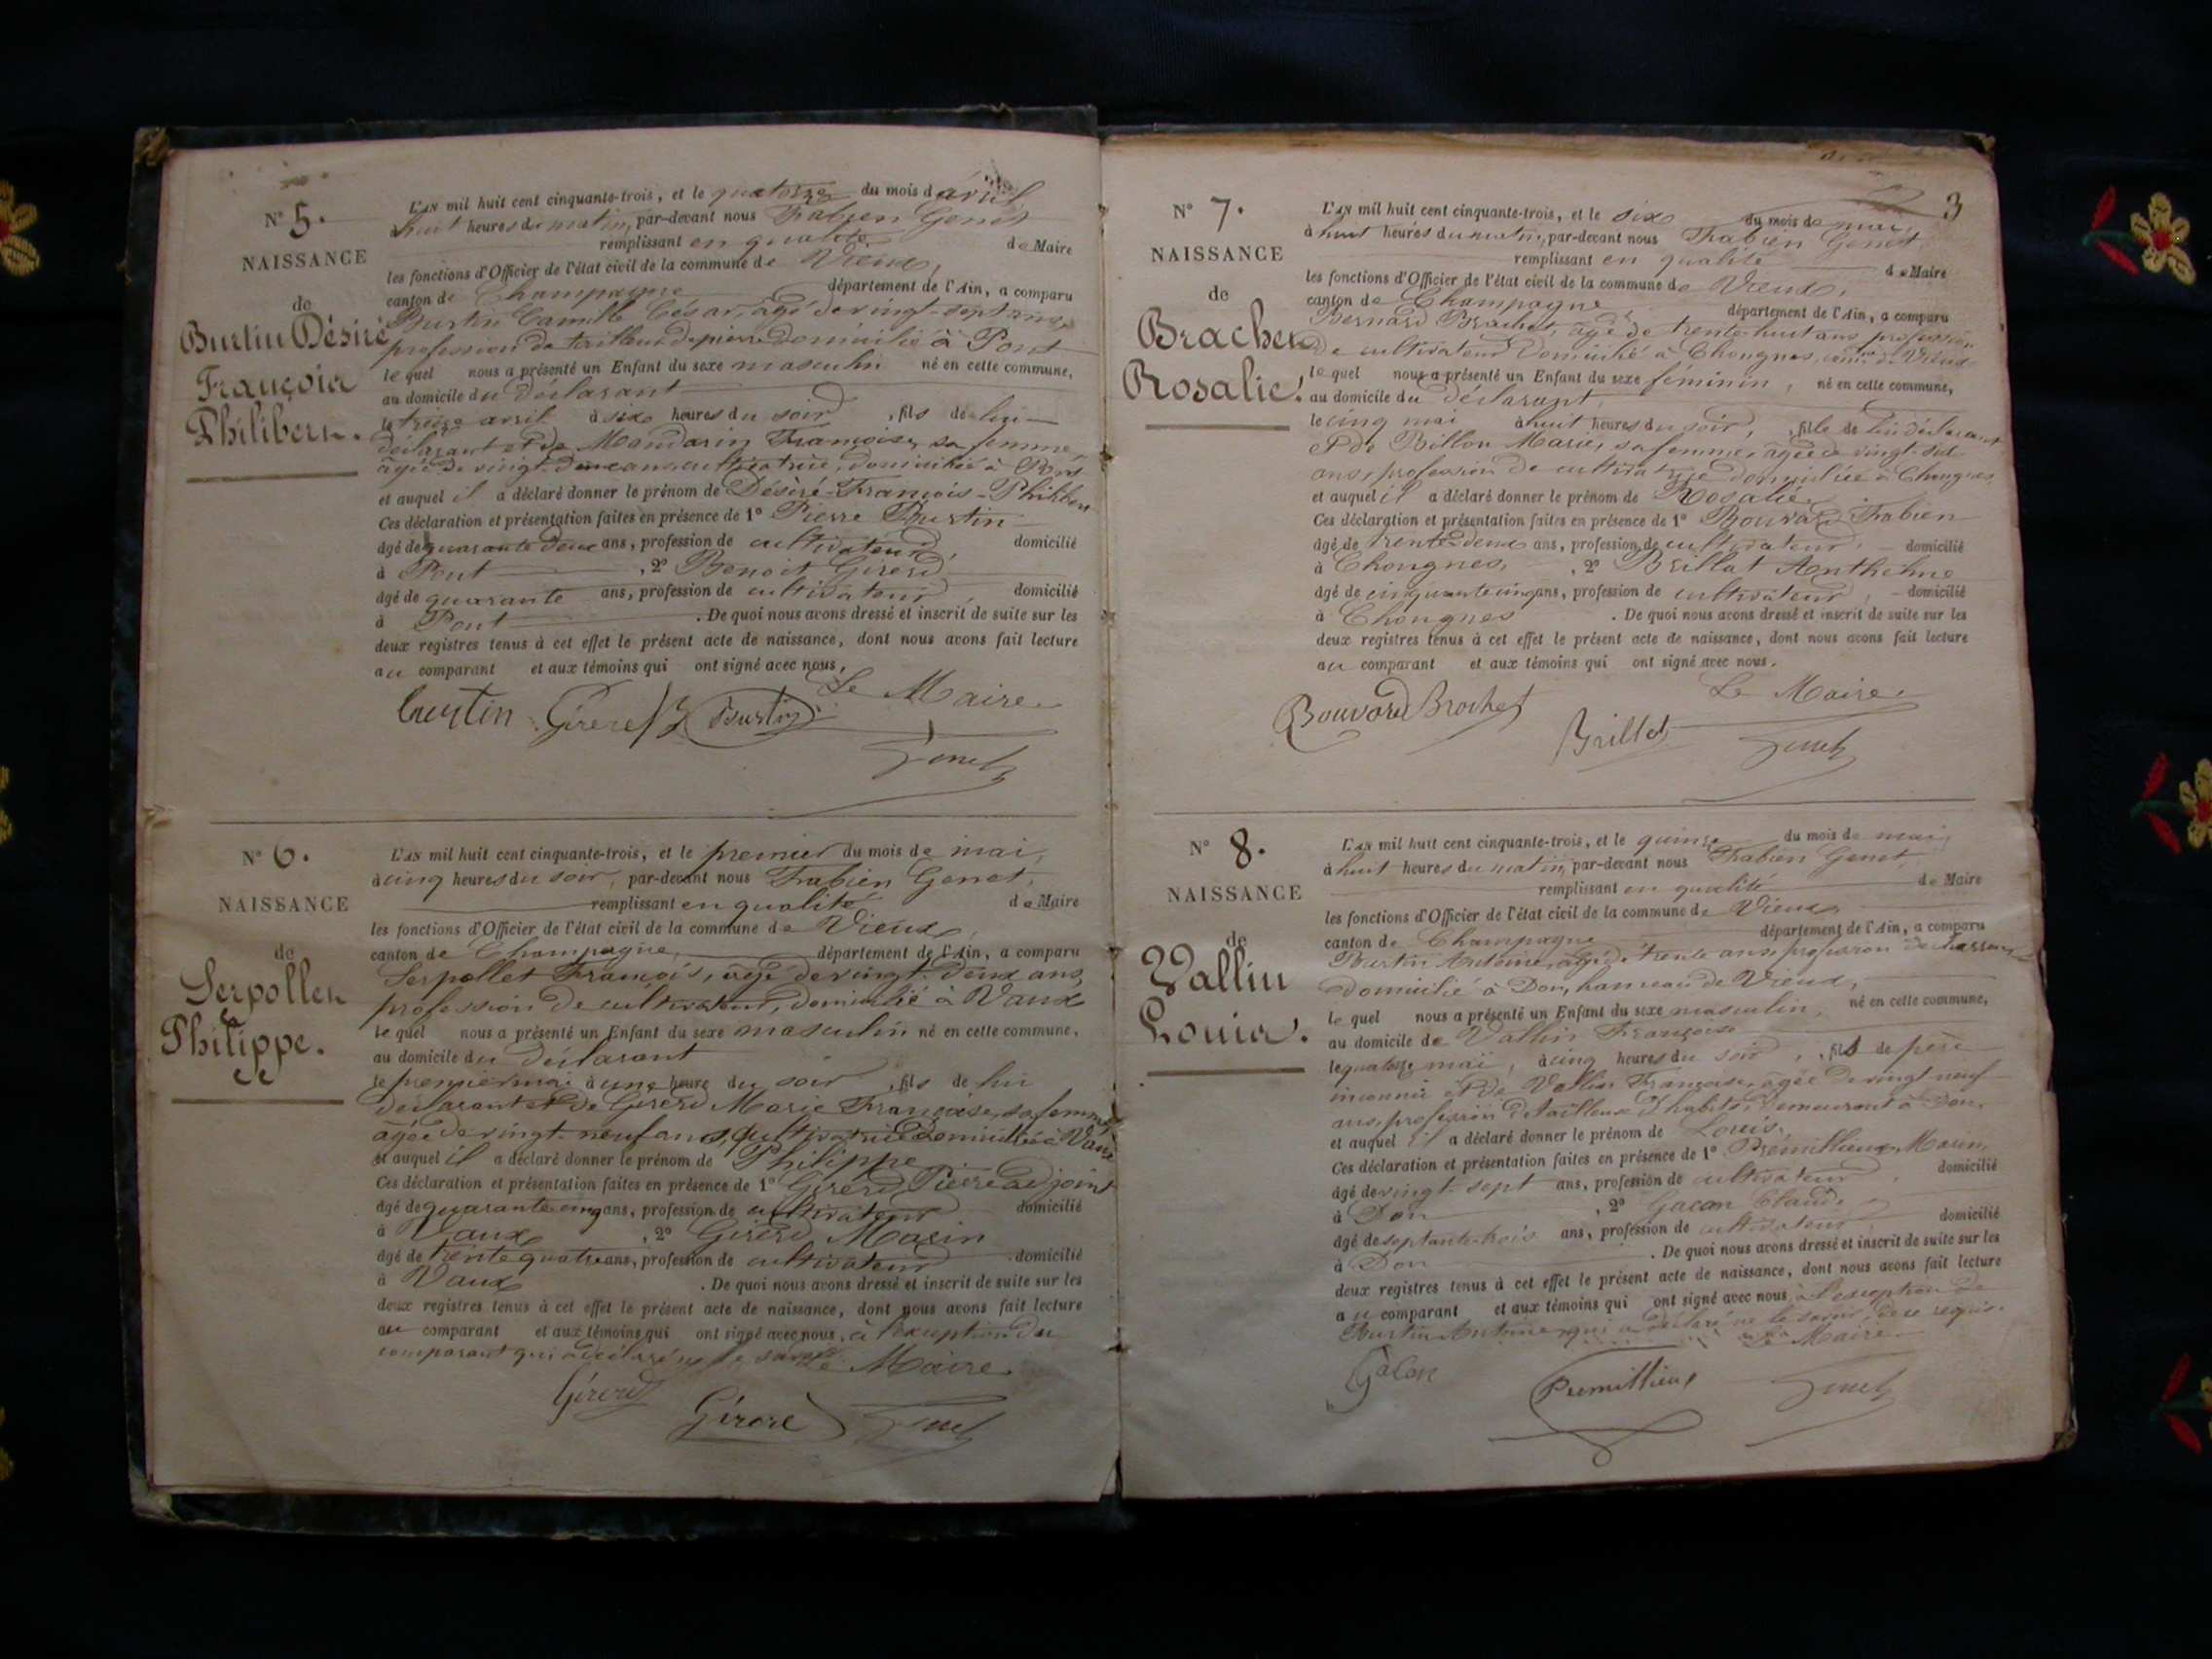 N° 5.
NAISSANCE
de
Burtin Désiré
François
Philibert.
L'AN mil huit cent cinquante-trois, et le quatorze du mois d'avril
à huit heures du matin, par-devant nous Fabien Genet
remplissant en qualité de Maire
les fonctions d'Officier de l'état civil de la commune de Vieux,
canton de Champagne département de l'Ain, a comparu
Burtin Camille César, âgé de vingt-sept ans,
profession de tailleur de pierre domicilié à Pont
lequel nous a présenté un Enfant du sexe masculin né en cette commune,
au domicile du déclarant
le treize avril à six heures du soir, fils de lui
déclarant et de Mandarin Françoise, sa femme,
âgée de vingt-deux ans cultivatrice, domiciliée à Pont
et auquel il a déclaré donner le prénom de Désiré-François-Philibert
Ces déclaration et présentation faites en présence de 1° Pierre Burtin
âgé de quarante deux ans, profession de cultivateur, domicilié
à Pont, 2° Benoit Girerd
âgé de quarante ans, profession de cultivateur, domicilié
à Pont. De quoi nous avons dressé et inscrit de suite sur les
deux registres tenus à cet effet le présent acte de naissance, dont nous avons fait lecture
au comparant et aux témoins qui ont signé avec nous,
Le Maire
Burtin Girerd B Burtin
Genet
N° 6.
NAISSANCE
de
Serpollet
Philippe.
L'AN mil huit cent cinquante-trois, et le premier du mois de mai,
à cinq heures du soir, par-devant nous Fabien Genet,
remplissant en qualité de Maire
les fonctions d'Officier de l'état civil de la commune de Vieux,
canton de Champagne, département de l'Ain, a comparu
Serpollet François, âgé de vingt-deux ans,
profession de cultivateur, domicilié à Vaux
lequel nous a présenté un Enfant du sexe masculin né en cette commune,
au domicile du déclarant
le premier mai à une heure du soir, fils de lui
déclarant et de Girerd Marie Françoise, sa femme,
âgée de vingt-neuf ans, cultivatrice domiciliée à Vaux
et auquel il a déclaré donner le prénom de Philippe
Ces déclaration et présentation faites en présence de 1° Girerd Pierre adjoint
âgé de quarante cinq ans, profession de cultivateur domicilié
à Vaux, 2° Girerd Marin
âgé de trente quatre ans, profession de cultivateur domicilié
à Vaux. De quoi nous avons dressé et inscrit de suite sur les
deux registres tenus à cet effet le présent acte de naissance, dont nous avons fait lecture
au comparant et aux témoins qui ont signé avec nous, à l'exception du
comparant qui a déclaré ne le savoir Le Maire
Girerd Girerd Genet
3
N° 7.
NAISSANCE
de
Brachet
Rosalie.
L'AN mil huit cent cinquante-trois, et le six du mois de mai,
à huit heures du matin, par-devant nous Fabien Genet
remplissant en qualité de Maire
les fonctions d'Officier de l'état civil de la commune de Vieux,
canton de Champagne département de l'Ain, a comparu
Bernard Brachet, âgé de trente-huit ans profession
de cultivateur domicilié à Chongnes, de Vieux
lequel nous a présenté un Enfant du sexe féminin, né en cette commune,
au domicile du déclarant,
le cinq mai à huit heures du soir, fille de lui déclarant
et de Billon Marie, sa femme, âgée de vingt-six
ans, profession de cultivatrice domiciliée à Chongnes
et auquel il a déclaré donner le prénom de Rosalie,
Ces déclaration et présentation faites en présence de 1° Bouvard Fabien
âgé de trente-deux ans, profession de cultivateur, domicilié
à Chongnes, 2° Brillat Anthelme
âgé de cinquante cinq ans, profession de cultivateur, domicilié
à Chongnes. De quoi nous avons dressé et inscrit de suite sur les
deux registres tenus à cet effet le présent acte de naissance, dont nous avons fait lecture
au comparant et aux témoins qui ont signé avec nous.
Le Maire.
Bouvard Brochet
Brillat Genet
N° 8.
NAISSANCE
de
Vallin
Louis.
L'AN mil huit cent cinquante-trois, et le quinze du mois de mai,
à huit heures du matin, par-devant nous Fabien Genet,
remplissant en qualité de Maire
les fonctions d'Officier de l'état civil de la commune de Vieux,
canton de Champagne département de l'Ain, a comparu
Burtin Antoine, âgé de trente ans, profession de
domicilié à Don, hameau de Vieux,
lequel nous a présenté un Enfant du sexe masculin, né en cette commune,
au domicile de Vallin Françoise
le quatorze mai, à cinq heures du soir, fils de père
inconnu et de Vallin Françoise, âgée de vingt neuf
ans, profession de tailleuse d'habits, demeurant à Don,
et auquel il a déclaré donner le prénom de Louis.
Ces déclaration et présentation faites en présence de 1° Prémillieux Marin,
âgé de vingt-sept ans, profession de cultivateur, domicilié
à Don, 2° Gacon Claude
âgé de septante-trois ans, profession de cultivateur domicilié
à Don. De quoi nous avons dressé et inscrit de suite sur les
deux registres tenus à cet effet le présent acte de naissance, dont nous avons fait lecture
au comparant et aux témoins qui ont signé avec nous à l'exception de
Burtin Antoine, qui a déclaré ne le savoir, de ce requis.
Le Maire
Gacon Premillieux Genet